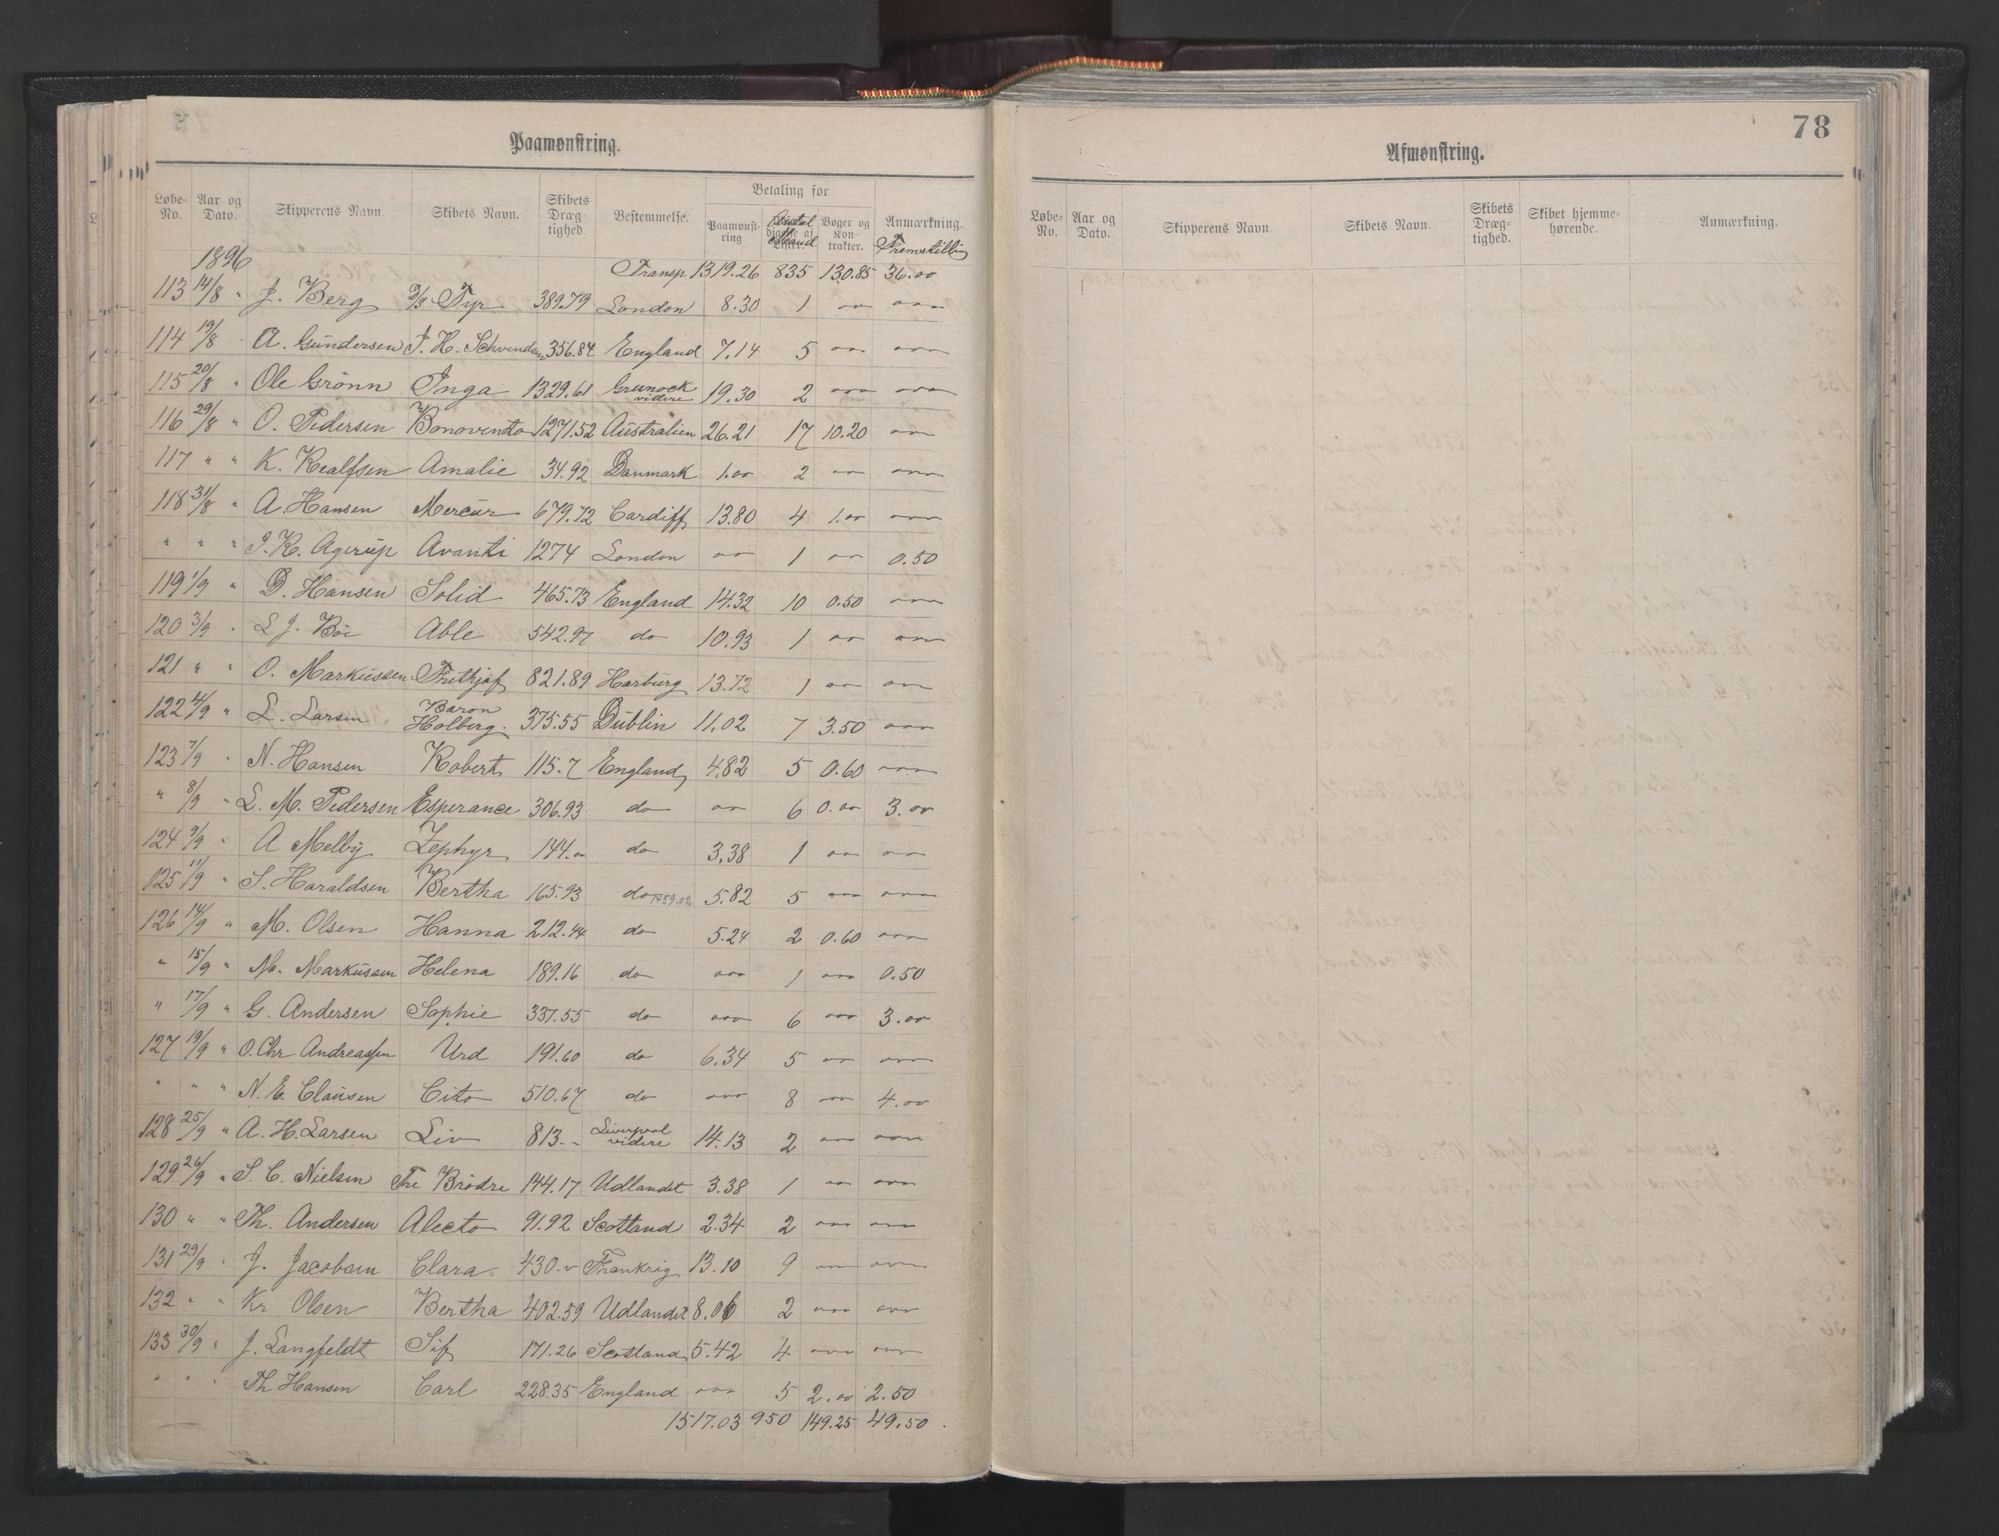 Paamønstring.
Løbe-No. Aar og Dato. Skipperens Navn. Skibets Navn. Skibets Dræg-tighed. Bestemmelse. Betaling for Paamønst-ring. Antal Mand Bøger og Kon-trakter. Anmærkning. Fremstillin
1896 Transp 1319.26 835 130.85 36.00
113 14/8 " J. Berg D/S Tyr 389.79 London 8.30 1 " "
114 19/8 " A. Gundersen J. H. Schwendsen 356.84 England 7.14 5 " "
115 20/8 " Ole Grönn Inga 1329.61 Grenock videre 19.30 2 " "
116 29/8 " O. Pedersen Bonoventa 1271.52 Australien 26.21 17 10.20 "
117 " " K. Realfsen Amalie 34.92 Danmark 1.00 2 " "
118 31/8 " A. Hansen Mercur 679.72 Cardiff 13.80 4 1.00 "
" " " J. K. Agerup Avanti 1274 London " 1 " 0.50
119 1/9 " D. Hansen Solid 465.73 England 14.32 10 0.50 "
120 3/9 " L J. Böe Able 542.97 do 10.93 1 " "
121 " " O. Markussen Frithjof 821.89 Harburg 13.72 1 " "
122 4/9 " L. Larsen Baron Holberg. 375.55 Dublin 11.02 7 3.50 "
123 7/9 " N. Hansen Robert 115.7 England 4.82 5 0.60 "
" 8/9 " L. M. Pedersen Esperance 306.93 do " 6 0.00 3.00
124 9/9 " A Melby Zephyr 144.00 do 3.38 1 " "
125 11/9 " S. Haraldsen Bertha 165.93 do 1459.02 5.82 5 " "
126 14/9 " M. Olsen Hanna 212.44 do 5.24 2 0.60 "
" 15/9 " M. Markussen Helena 189.16 do " 1 " 0.50
" 17/9 " G. Andersen Sophie 337.55 do " 6 " 3.00
127 19/9 " O. Chr Andreassen Urd 191.60 do 6.34 5 " "
" " " N. E. Clausen Cito 510.67 do " 8 " 4.00
128 25/9 " A. H. Larsen Liv 813.- Liverpool videre 14.13 2 " "
129 26/9 " S. C. Nielsen Tre Brödre 144.17 Udlandet 3.38 1 " "
130 " " Th. Andersen Alecto 91.92 Scotland 2.34 2 " "
131 29/9 " J. Jacobsen Clara 430.- Frankrig 13.10 9 " "
132 " " Kr Olsen Bertha 402.59 Udlandet 8.06 2 " "
133 30/9 " J. Langfeldt Sif 171.26 Scotland 5.42 4 " "
" " " Th Hansen Carl 228.35 England " 5 2.00 2.50
1517.03 950 149.25 49.50
78
Afmønstring.
Løbe-No. Aar og Dato. Skipperens Navn. Skibets Navn. Skibets Dræg-tighed. Skibet hjemme-hørende. Anmærkning.